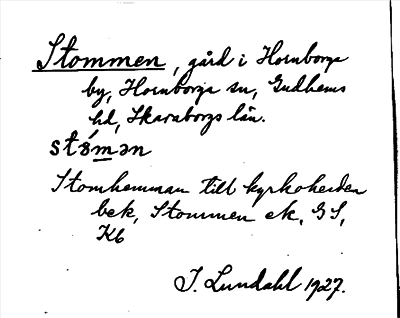 Stommen, gård i Hornborga
by, Hornborga sn, Gudhems
hd, Skaraborgs län.
stómən
Stomhemman till kyrkoherden
bek, Stommen ek, GS,
Kb
I. Lundahl 1927.